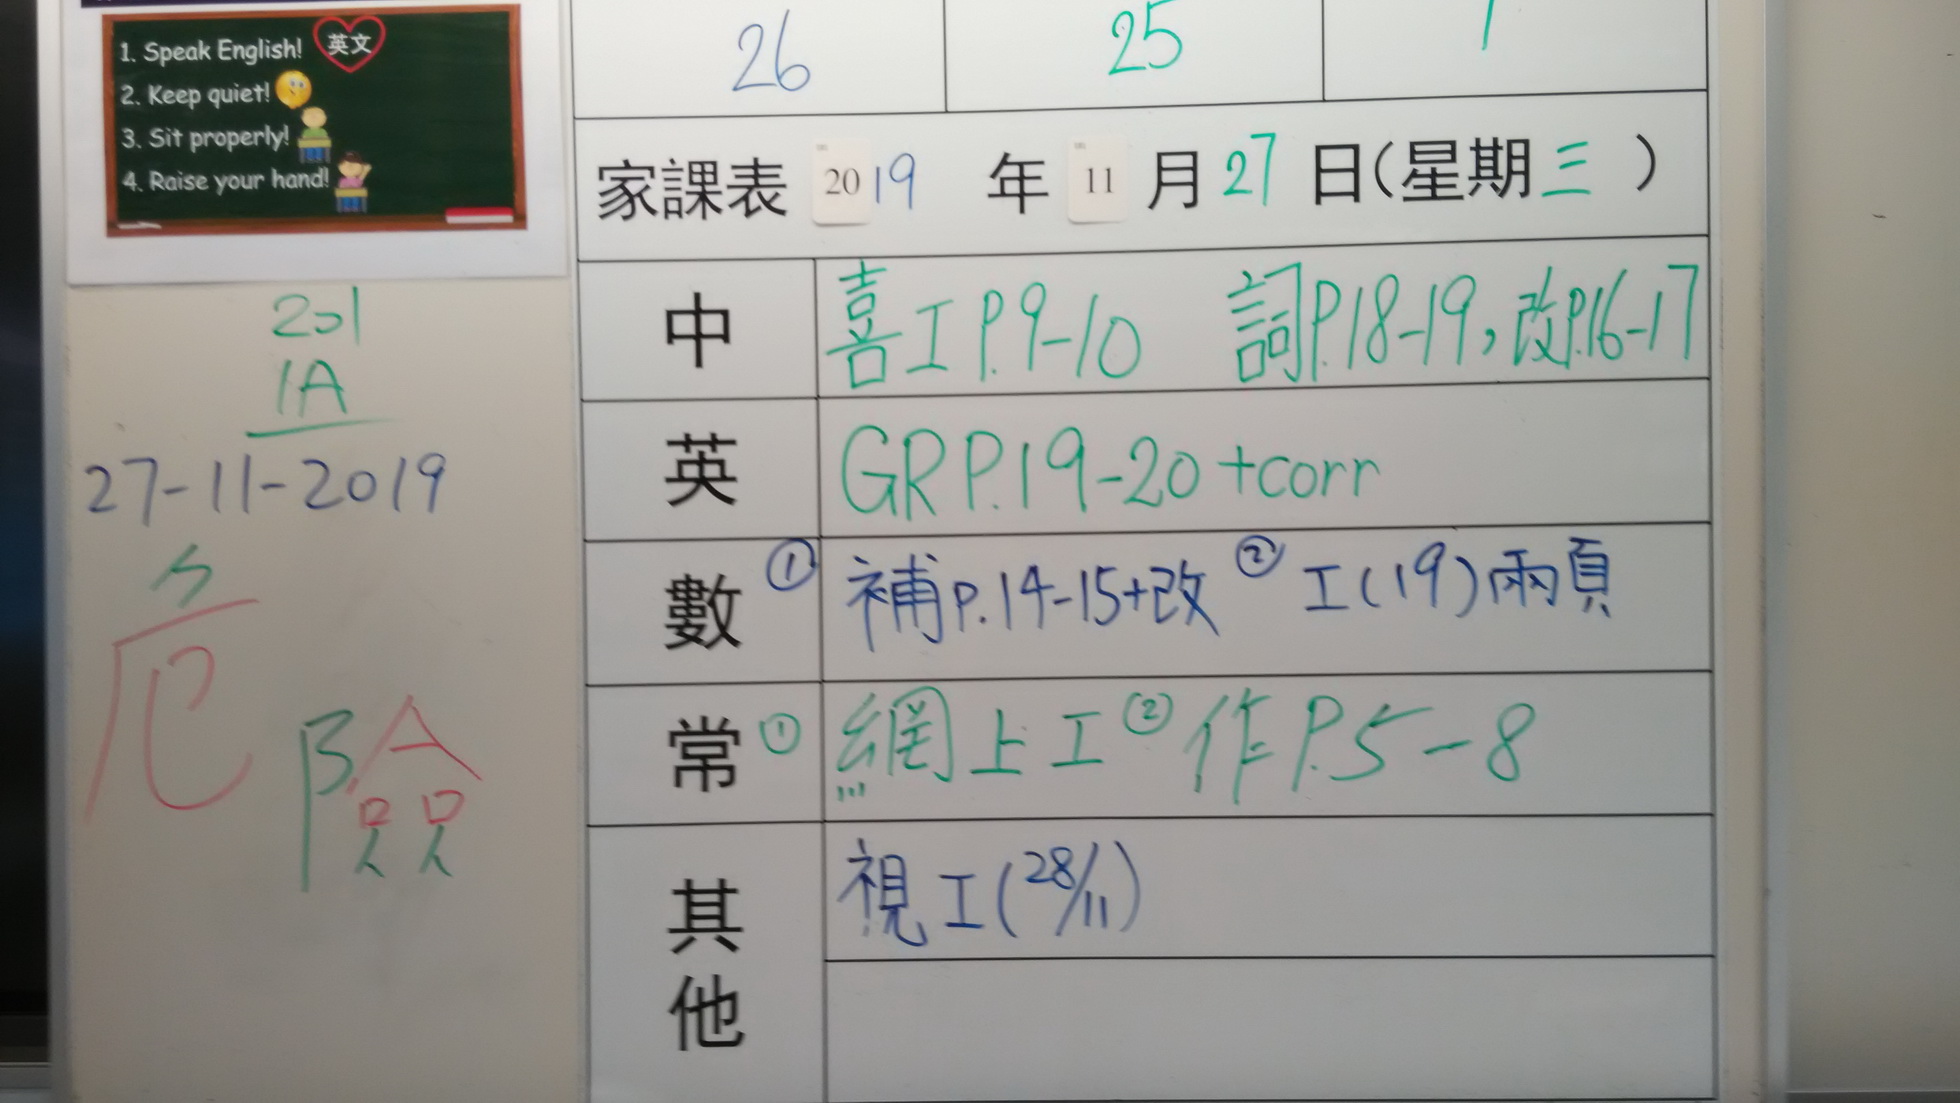 1. Speak English! 英文
2. Keep quiet!
3. Sit properly!
4. Raise your hand!
26 25 1
家課表 2019 年 11 月 27 日(星期三)
201
1A
27-11-2019
中 喜工P.9-10 詞P.18-19，改P.16-17
英 GR P.19-20 +corr
數 ① 補p.14-15+改 ② 工(19)兩頁
常 ① 網上工 ② 作P.5-8
其他 視工(28/11)